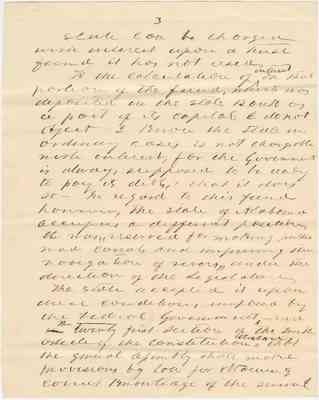 3
State can be charged
with interest upon a trust
fund it has not used.
To the calculation of interest on that
portion of the fund, which was
deposited in the State Bank as
a part of its capital I do not
object. I know the State in
ordinary cases is not chargeable
with interest, for the Government
is always supposed to be ready
to pay its debts, that it does
so — In regard to this fund
however, the State of Alabama
occupies a different position,
It was for making
and canals and improving the
navigation of rivers, under the
direction of the Legislature.
The State accepted it upon
these conditions imposed by
the Federal Government, and
The twenty first section of the Sixth
Article of the Constitution of Alabama, that
the general assembly shall make
provisions by law for obtaining
correct knowledge of the several